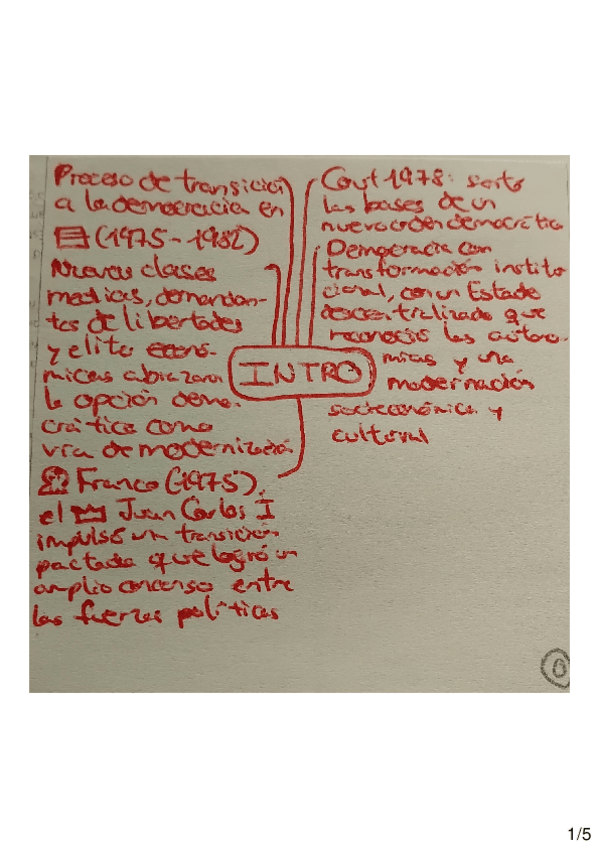 Proceso de transición
a la democracia en
(1975-1982)
Nuevas clases
medias, demandan-
tes de libertades
y elite econó-
micas abrazaron
la opción demo-
crática como
vía de modernización
Franco (1975),
el Juan Carlos I
impulsó una transición
pactada que logró un
amplio concenso entre
las fuerzas políticas
INTRO
Const 1978: sentó
las bases de un
nuevo orden democrático
Democracia con
transformación institu
cional, con un Estado
descentralizado que
reconoció las autono-
mías y una
modernación
socioeconómica y
cultural
6
1/5